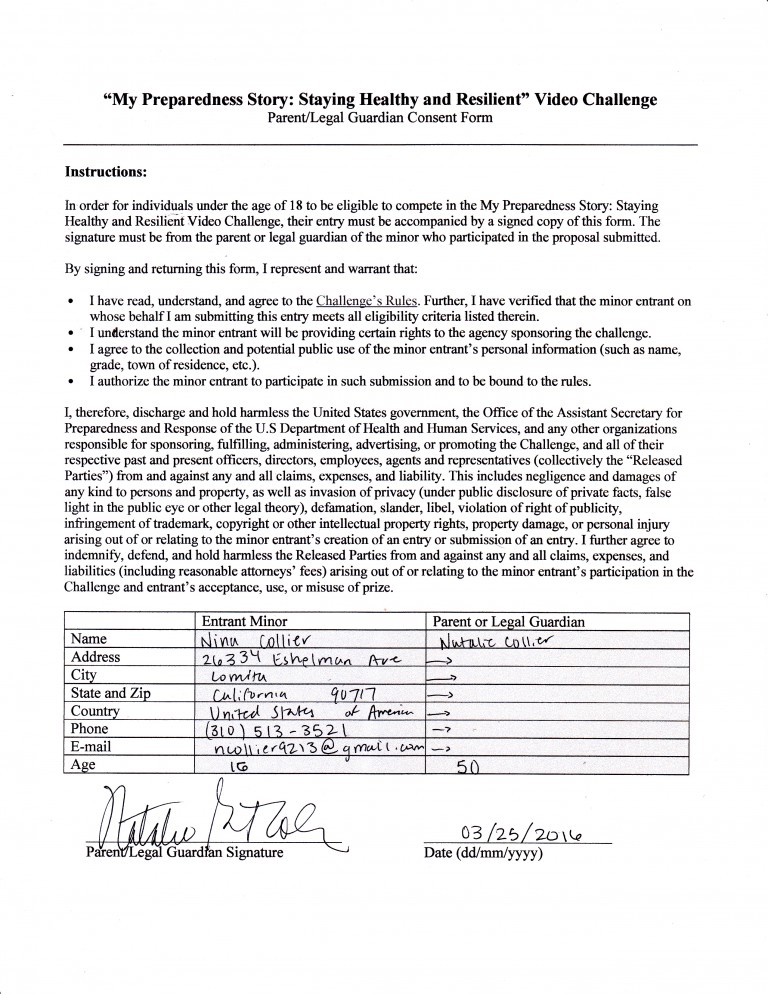 “My Preparedness Story: Staying Healthy and Resilient” Video Challenge
Parent/Legal Guardian Consent Form
Instructions:
In order for individuals under the age of 18 to be eligible to compete in the My Preparedness Story: Staying
Healthy and Resilient Video Challenge, their entry must be accompanied by a signed copy of this form. The
signature must be from the parent or legal guardian of the minor who participated in the proposal submitted.
By signing and returning this form, I represent and warrant that:
• I have read, understand, and agree to the Challenge’s Rules. Further, I have verified that the minor entrant on
whose behalf I am submitting this entry meets all eligibility criteria listed therein.
• I understand the minor entrant will be providing certain rights to the agency sponsoring the challenge.
• I agree to the collection and potential public use of the minor entrant’s personal information (such as name,
grade, town of residence, etc.).
• I authorize the minor entrant to participate in such submission and to be bound to the rules.
I, therefore, discharge and hold harmless the United States government, the Office of the Assistant Secretary for
Preparedness and Response of the U.S Department of Health and Human Services, and any other organizations
responsible for sponsoring, fulfilling, administering, advertising, or promoting the Challenge, and all of their
respective past and present officers, directors, employees, agents and representatives (collectively the “Released
Parties”) from and against any and all claims, expenses, and liability. This includes negligence and damages of
any kind to persons and property, as well as invasion of privacy (under public disclosure of private facts, false
light in the public eye or other legal theory), defamation, slander, libel, violation of right of publicity,
infringement of trademark, copyright or other intellectual property rights, property damage, or personal injury
arising out of or relating to the minor entrant’s creation of an entry or submission of an entry. I further agree to
indemnify, defend, and hold harmless the Released Parties from and against any and all claims, expenses, and
liabilities (including reasonable attorneys’ fees) arising out of or relating to the minor entrant’s participation in the
Challenge and entrant’s acceptance, use, or misuse of prize.
Entrant Minor Parent or Legal Guardian
Name Nina Collier Natalie Collier
Address 26334 Eshelman Ave →
City Lomita →
State and Zip California 90717 →
Country United States of America →
Phone (310) 513-3521 →
E-mail ncollier9213@gmail.com →
Age 16 50
Natalie
Parent/Legal Guardian Signature
03/25/2016
Date (dd/mm/yyyy)